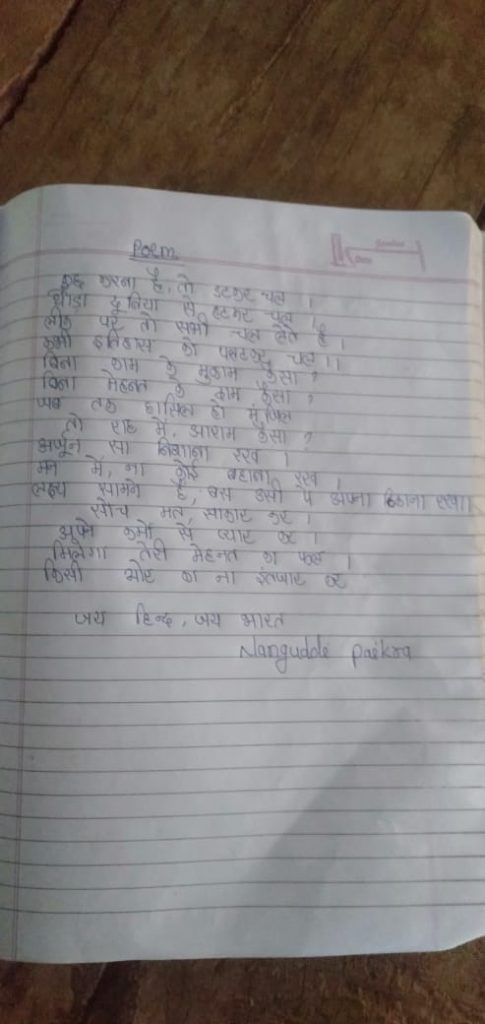 Poem
कुछ करना है, तो डटकर चल ।
थोड़ा दुनिया से हटकर चल ।
लीक पर तो सभी चल लेते है ।
कभी इतिहास को पलटकर चल ।।
बिना काम के मुकाम कैसा ?
बिना मेहनत के दाम कैसा ?
जब तक हासिल हो मंजिल
तो राह में, आराम कैसा ?
अर्जुन सा निशाना रख ।
मन में, ना कोई बहाना रख ।
लक्ष्य सामने है, बस उसी पे अपना ठिकाना रख।।
सोच मत, साकार कर ।
अपने कर्मो से प्यार कर ।
मिलेगा तेरी मेहनत का फल ।
किसी ओर का ना इंतजार कर
जय हिन्द, जय भारत
Nangudde paikra